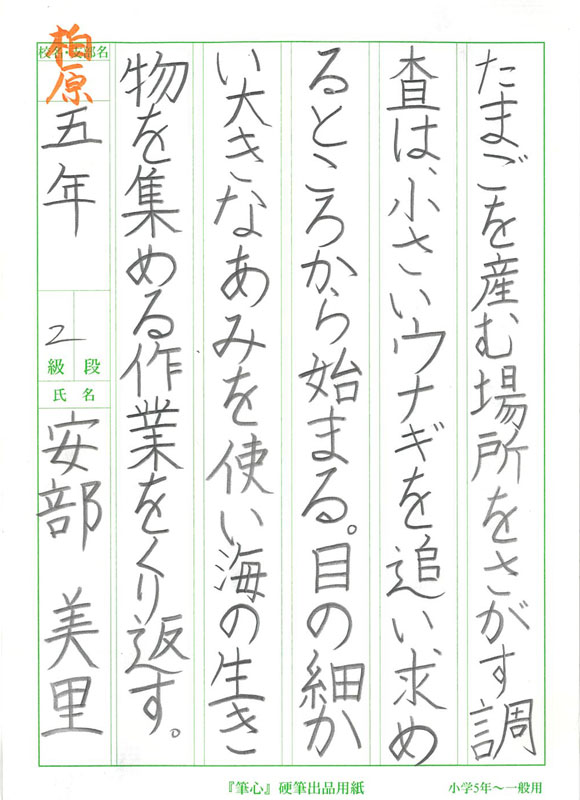 たまごを産む場所をさがす調
査は、小さいウナギを追い求め
るところから始まる。目の細か
い大きなあみを使い海の生き
物を集める作業をくり返す。
校名・支部名
柏原
五年
2
級 段
氏名
安部 美里
『筆心』硬筆出品用紙
小学5年〜一般用